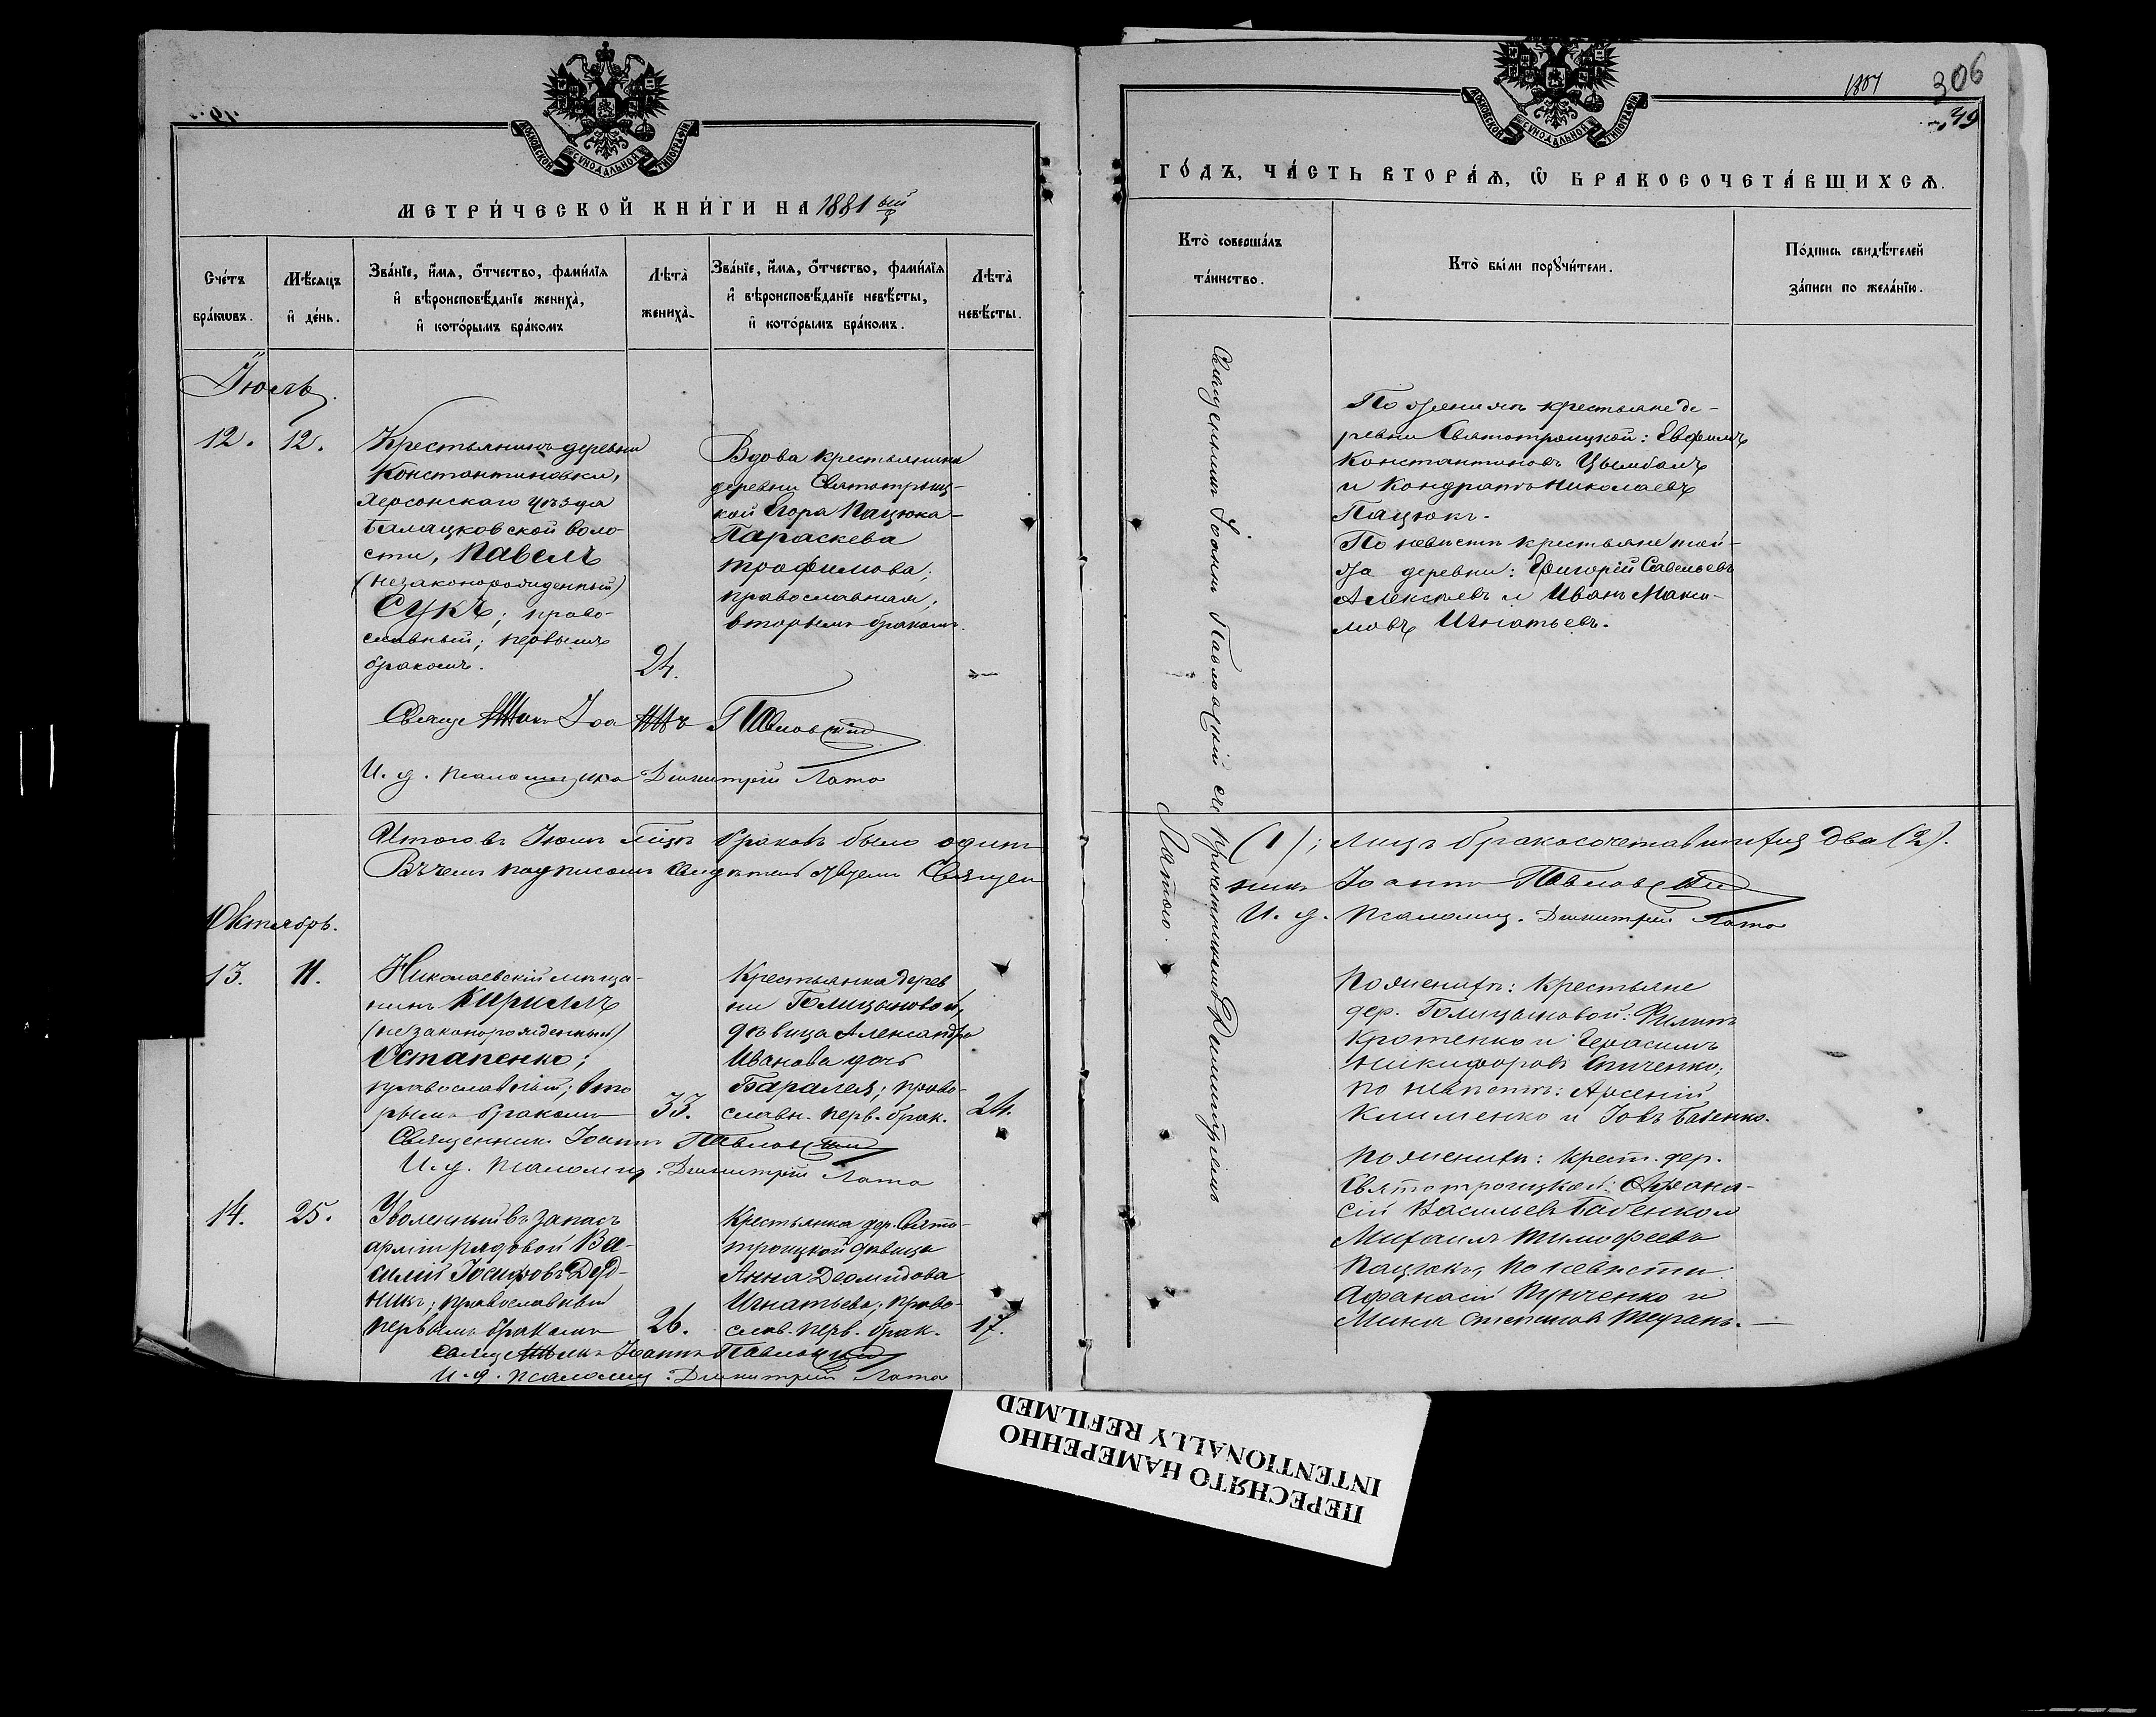 МЕТРИ́ЧЕСКОЙ КНИ́ГИ НА 1881 ый
МОСКОВСКОЙ СѴНОДАЛЬНОЙ ТИПОГРАФІИ
Сче́тъ бра́кѡвъ.
Мѣ́сяцъ и҆ де́нь.
Зва́нїе, и҆́мѧ, ѻ҆́тчество, фами́лїѧ
и҆ вѣроисповѣ́данїе жениха̀,
и҆ кото́рымъ бра́комъ
Лѣта̀ жениха̀.
Зва́нїе, и҆́мѧ, ѻ҆́тчество, фами́лїѧ
и҆ вѣроисповѣ́данїе невѣ́сты,
и҆ кото́рымъ бра́комъ.
Лѣта̀ невѣ́сты.
Іюль.
12. 12.
Крестьянинъ деревни
Константиновки,
Херсонскаго уѣзда
Балацковской воло-
сти, Павелъ
(незаконорожденный)
Сукъ; право-
славный; первымъ
бракомъ.
24.
Вдова крестьянина
деревни Святотроиц-
кой Егора Пацюка-
Параскева
Трофимова;
православная;
вторымъ бракомъ.
Священникъ Іоаннъ Павловскій
И. д. псаломщика Димитрій Лато
Итого въ Іюлѣ мѣсяцѣ браковъ было одинъ
Въ чемъ подписомъ свидѣтельствуемъ Священ
Октябрь.
13. 11.
Николаевскій мѣща-
нинъ Кириллъ
(незаконорожденный)
Остапенко;
православный; вто
рымъ бракомъ
33.
Крестьянка дерев
ни Голицыновой,
дѣвица Александра
Иванова дочь
Баралея; право-
славн. перв. брак.
24.
Священникъ Іоаннъ Павловскій
И. д. псаломщ. Димитрій Лато
14. 25.
Уволенный въ запасъ
арміи рядовой Ва-
силій Іосифовъ Дуд-
никъ; православный
первымъ бракомъ
26.
Крестьянка дер. Свято-
троицкой дѣвица
Анна Деомидова
Игнатьева; право-
слав. перв. брак.
17.
Священникъ Іоаннъ Павловскій
И. д. псаломщ: Димитрій Лато
306
49
МОСКОВСКОЙ СѴНОДАЛЬНОЙ ТИПОГРАФІИ
ГО́ДЪ, ЧА́СТЬ ВТОРА́Ѧ, Ѽ БРАКОСОЧЕТА́ВШИХСѦ.
Кто̀ соверша́лъ
та́инство.
Кто̀ бы́ли порꙋчи́тели.
По́дпись свидѣ́телей
за́писи по жела́нїю.
Священникъ Іоаннъ Павловскій съ причетникомъ Димитріемъ
Латою.
По женихѣ крестьяне де-
ревни Святотроицкой: Евфимъ
Константиновъ Цымбалъ
и Кондратъ Николаевъ
Пацюкъ.
По невѣстѣ крестьяне той-
же деревни: Григорій Савельевъ
Алексѣевъ и Иванъ Макси-
мовъ Игнатьевъ.
(1); лицъ бракосочетавшихся два (2).
никъ Іоаннъ Павловскій
И. д. Псаломщ. Димитрій Лато
По женихѣ: крестьяне
дер. Голицыновой: Филипъ
Кротенко и Герасимъ
Никифоровъ
по невѣстѣ: Арсеній
Клименко и Іовъ Бабенко.
По женихѣ: крест. дер.
Святотроицкой: Афана-
сій Васильевъ Бабенко и
Михаилъ Тимофеевъ
Пацюкъ, по невѣсти
Афанасій Пунченко и
Мина Степановъ
ПЕРЕСНЯТО НАМЕРЕННО
INTENTIONALLY REFILMED